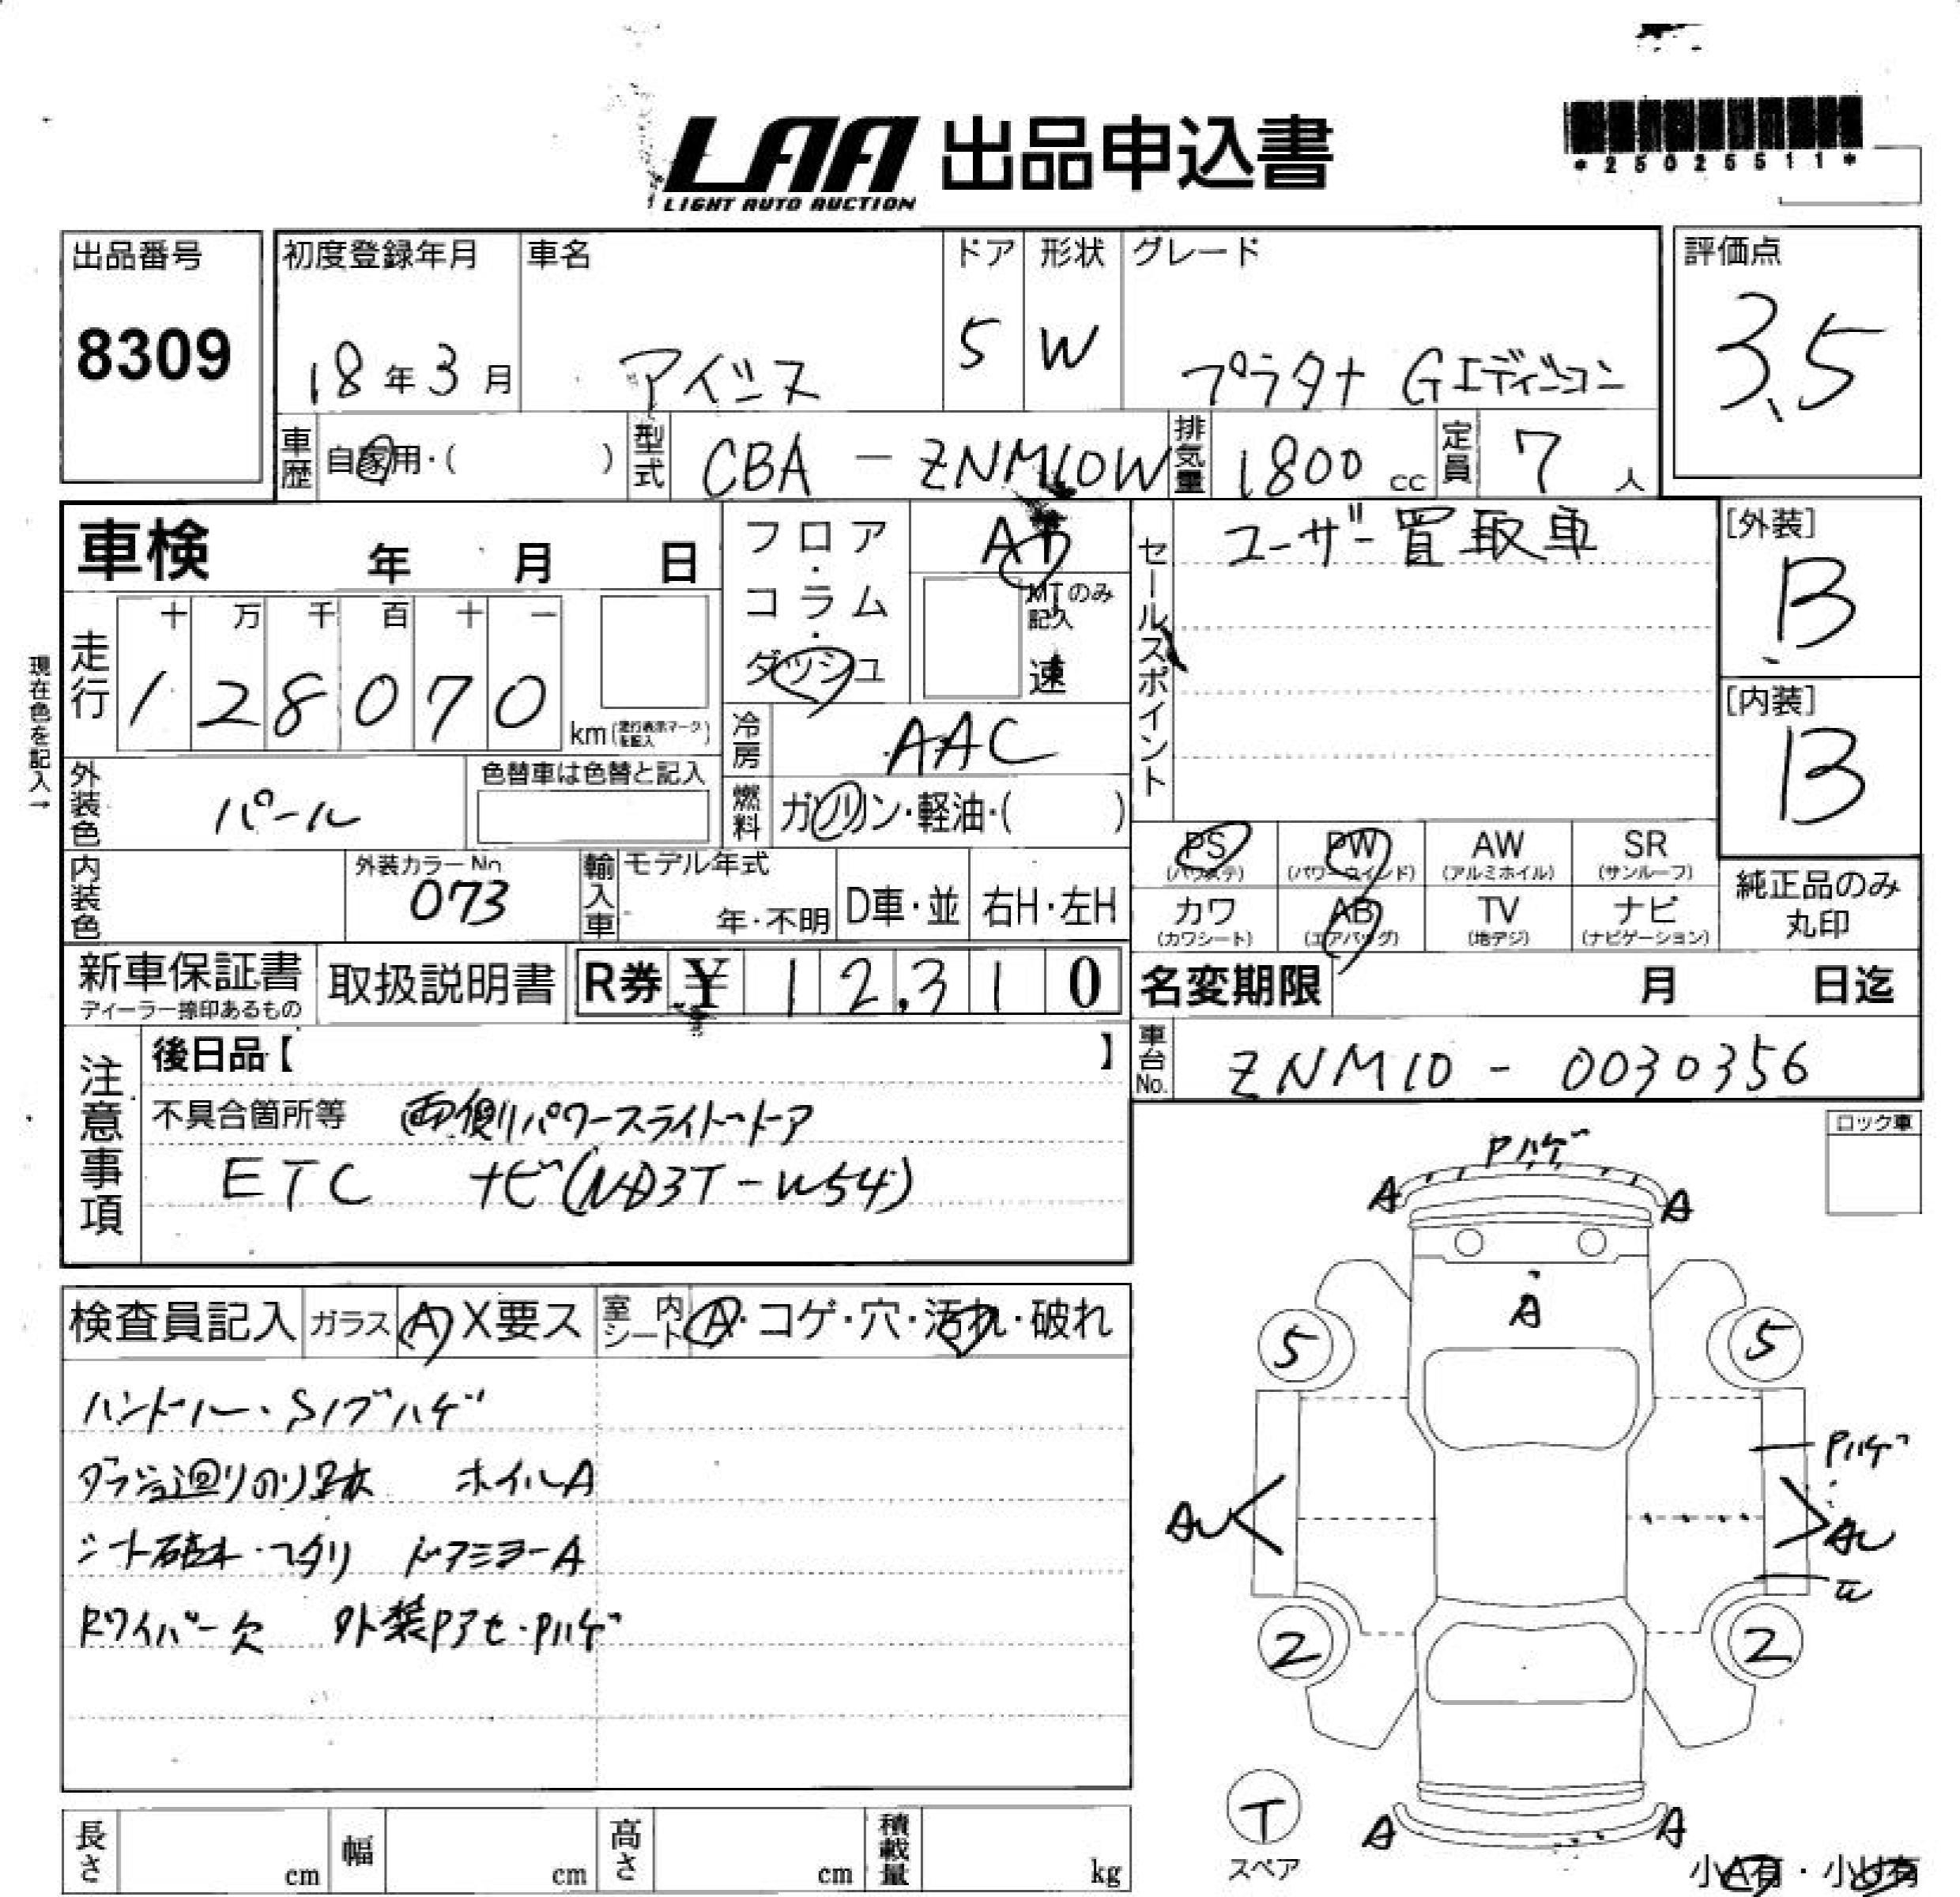 *25025511*
LAA 出品申込書
LIGHT AUTO AUCTION
出品番号
8309
初度登録年月
18年3月
車名
アイシス
ドア
5
形状
W
グレード
プラタナ Gエディション
評価点
3.5
車歴
自家用・( )
型式
CBA - ZNM10W
排気量
1800 cc
定員
7 人
車検 年 月 日
フロア・コラム・ダッシュ
AT
MTのみ記入
速
セールスポイント
ユーザー買取車
[外装]
B
[内装]
B
現在色を記入→
走行
十 万 千 百 十 一
1 2 8 0 7 0
km(走行表示マークを記入)
冷房
AAC
外装色
パール
色替車は色替と記入
燃料
ガソリン・軽油・( )
PS (パワステ)
PW (パワーウィンド)
AW (アルミホイル)
SR (サンルーフ)
カワ (カワシート)
AB (エアバッグ)
TV (地デジ)
ナビ (ナビゲーション)
純正品のみ
丸印
内装色
外装カラーNo
073
輸入車
モデル年式
年・不明
D車・並
右H・左H
新車保証書
ディーラー捺印あるもの
取扱説明書
R券 ¥ 12,310
名変期限 月 日迄
車台No.
ZNM10 - 0030356
注意事項
後日品【 】
不具合箇所等 両側パワースライドドア
ETC ナビ(NHD3T-W54)
ロック車
検査員記入
ガラス
A X要ス
室内シート
A・コゲ・穴・汚れ・破れ
ハンドル・Sノブハゲ
ダッシュ廻りのり跡 ホイルA
ドアミラーA
ドライバー欠 外装Pアセ・Pハゲ
Pハゲ
A A
A
5 5
Pハゲ
AU AU
2 2
T
スペア
A A
小A有・小U有
長さ cm
幅 cm
高さ cm
積載量 kg